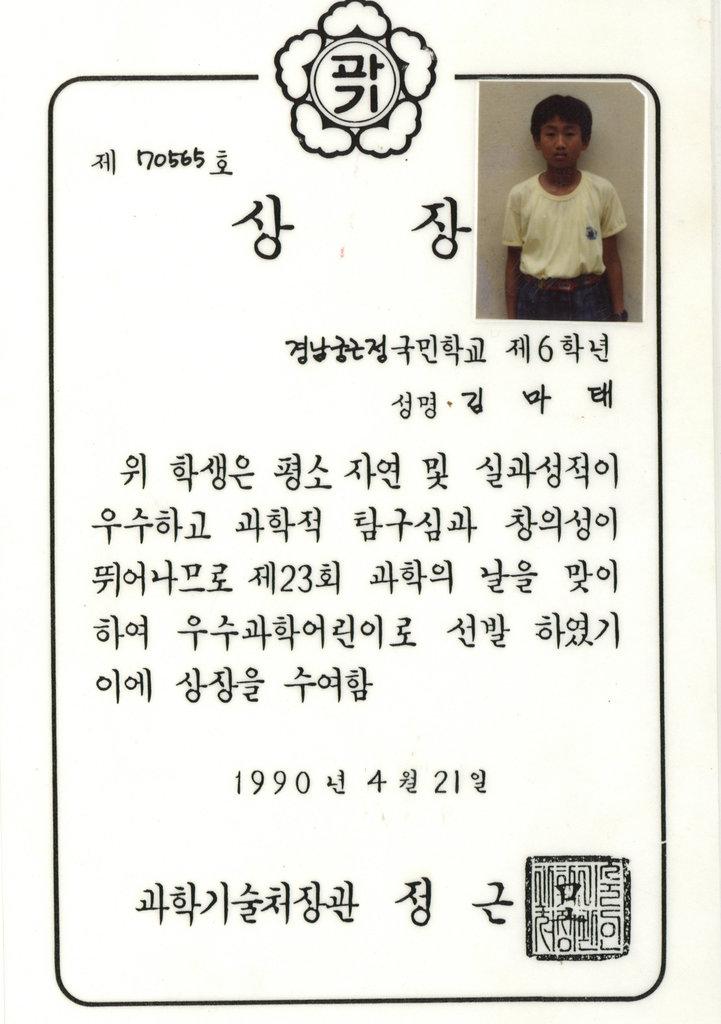 과기
제 70565 호
상 장
경남궁근정국민학교 제6학년
성명 · 김 마 태
위 학생은 평소 자연 및 실과성적이
우수하고 과학적 탐구심과 창의성이
뛰어나므로 제23회 과학의 날을 맞이
하여 우수과학어린이로 선발 하였기
이에 상장을 수여함
1990 년 4 월 21 일
과학기술처장관 정 근 모